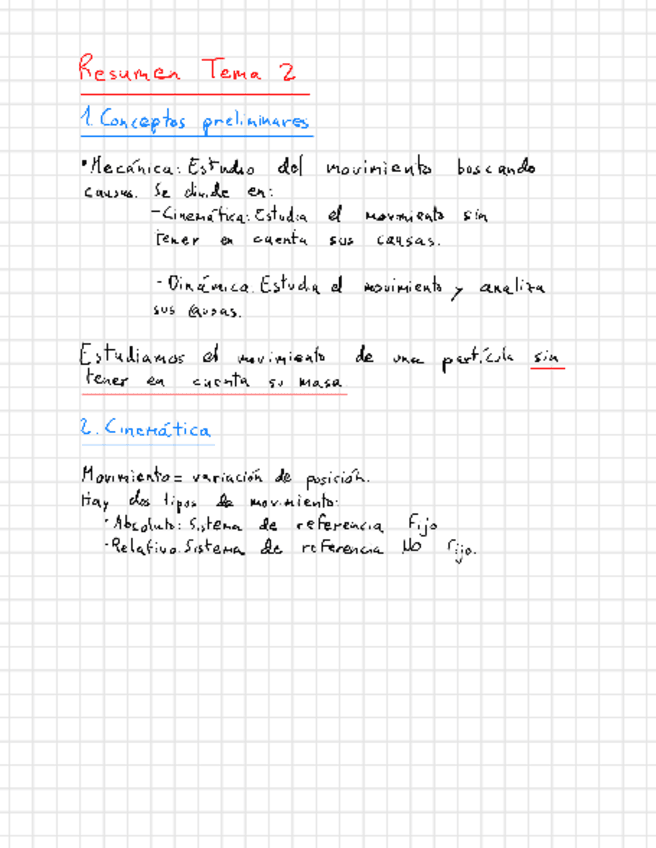 Resumen Tema 2
1. Conceptos preliminares
•Mecánica: Estudio del movimiento buscando
causas. Se divide en:
-Cinemática: Estudia el movimiento sin
tener en cuenta sus causas.
- Dinámica. Estudia el movimiento y analiza
sus causas.
Estudiamos el movimiento de una partícula sin
tener en cuenta su masa
2. Cinemática
Movimiento = variación de posición.
Hay dos tipos de movimiento:
·Absoluto: Sistema de referencia Fijo
·Relativo. Sistema de referencia NO Fijo.